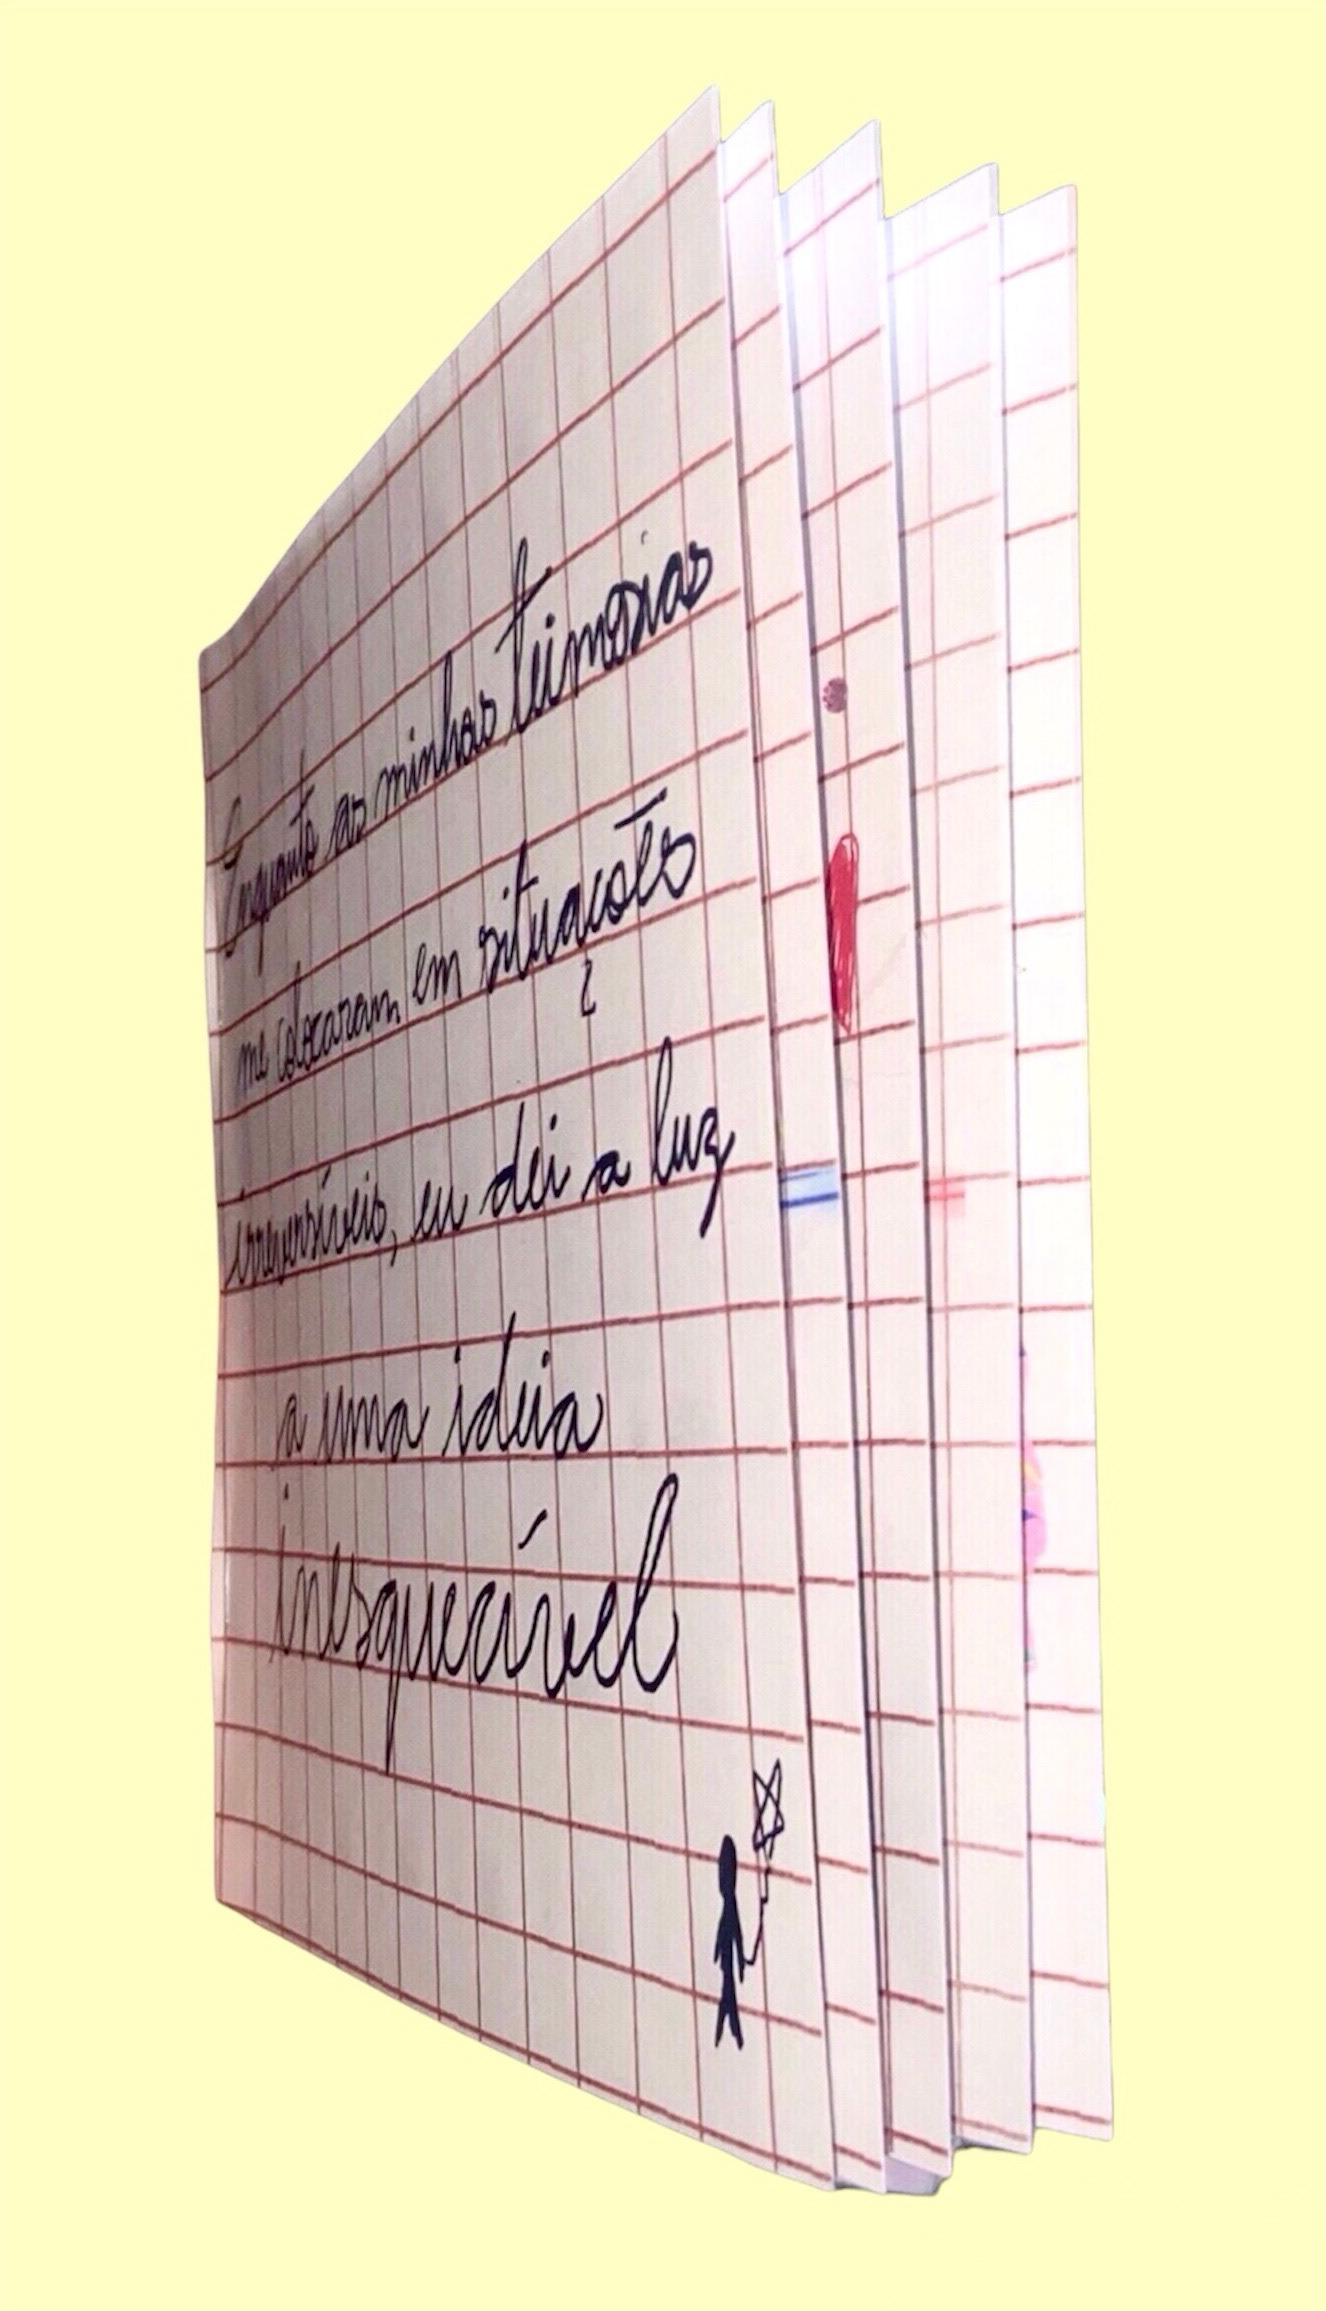 Enquanto as minhas teimosias
me colocaram em situações
irreversíveis, eu dei a luz
a uma ideia
inesquecível